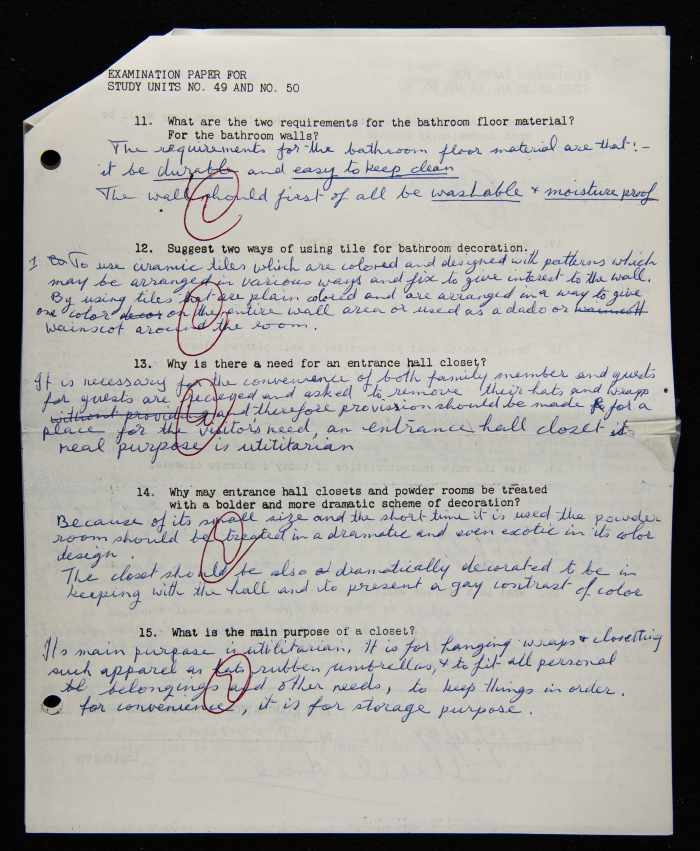 EXAMINATION PAPER FOR
STUDY UNITS NO. 49 AND NO. 50
11. What are the two requirements for the bathroom floor material?
For the bathroom walls?
The requirements for the bathroom floor material are that:-
it be durable and easy to keep clean
The wall should first of all be washable & moisture proof
12. Suggest two ways of using tile for bathroom decoration.
1 To use ciramic tiles which are colored and designed with patterns which
may be arranged in various ways and fix to give interest to the wall.
By using tiles that are plain colored and are arranged in a way to give
one color decor on the entire wall area or used as a dado or wainscott
wainscot around the room.
13. Why is there a need for an entrance hall closet?
It is necessary for the convenience of both family member and guests
for guests are recieved and asked to remove their hats and wrapps
without providing and therefore provission should be made for a
place for the visitor's need, an entrance hall closet is
real purpose is utititarian
14. Why may entrance hall closets and powder rooms be treated
with a bolder and more dramatic scheme of decoration?
Because of its small size and the short time it is used the powder
room should be treated in a dramatic and even exotic in its color
design.
The closet should be also dramatically decorated to be in
keeping with the hall and to present a gay contrast of color
15. What is the main purpose of a closet?
Its main purpase is utilitarian, It is for hanging wraps & closetting
such apparel as hats, rubben, umbrellas, & to fit all personal
belongings and other needs, to keep things in order.
for convenience, it is for storage purpose.